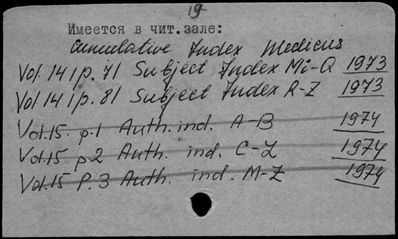 19
Имеется в чит.зале:
Cumulative Index Medicus
Vol. 14 1/p. 71 Subject Index Mi-Q 1973
Vol 14 1/p. 81 Subject Index R-Z 1973
Vol.15. p.1 Auth. ind. A-B 1974
Vol.15 p.2 Auth. ind. C-L 1974
Vol.15 P.3 Auth. ind. M-Z 1974